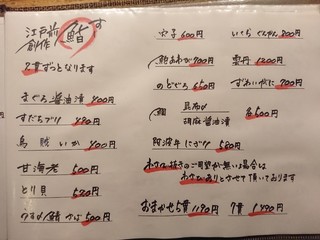 江戸前
創作 鮨 す
2貫ずつとなります
まぐろ醤油漬 400円
すだちブリ 480円
烏賊 いか 400円
甘海老 500円
とり貝 520円
うすば鯖 500円
穴子 600円
いくら 800円
鮑 あわび 700円
雲丹 1200円
のどぐろ 650円
ずわいがに 700円
鯛 昆布〆
胡麻醤油漬 各500円
阿波牛にぎり 580円
わさび抜きのご希望が無い場合は
わさびありとさせて頂いております
おまかせ5貫 1190円 7貫 1790円